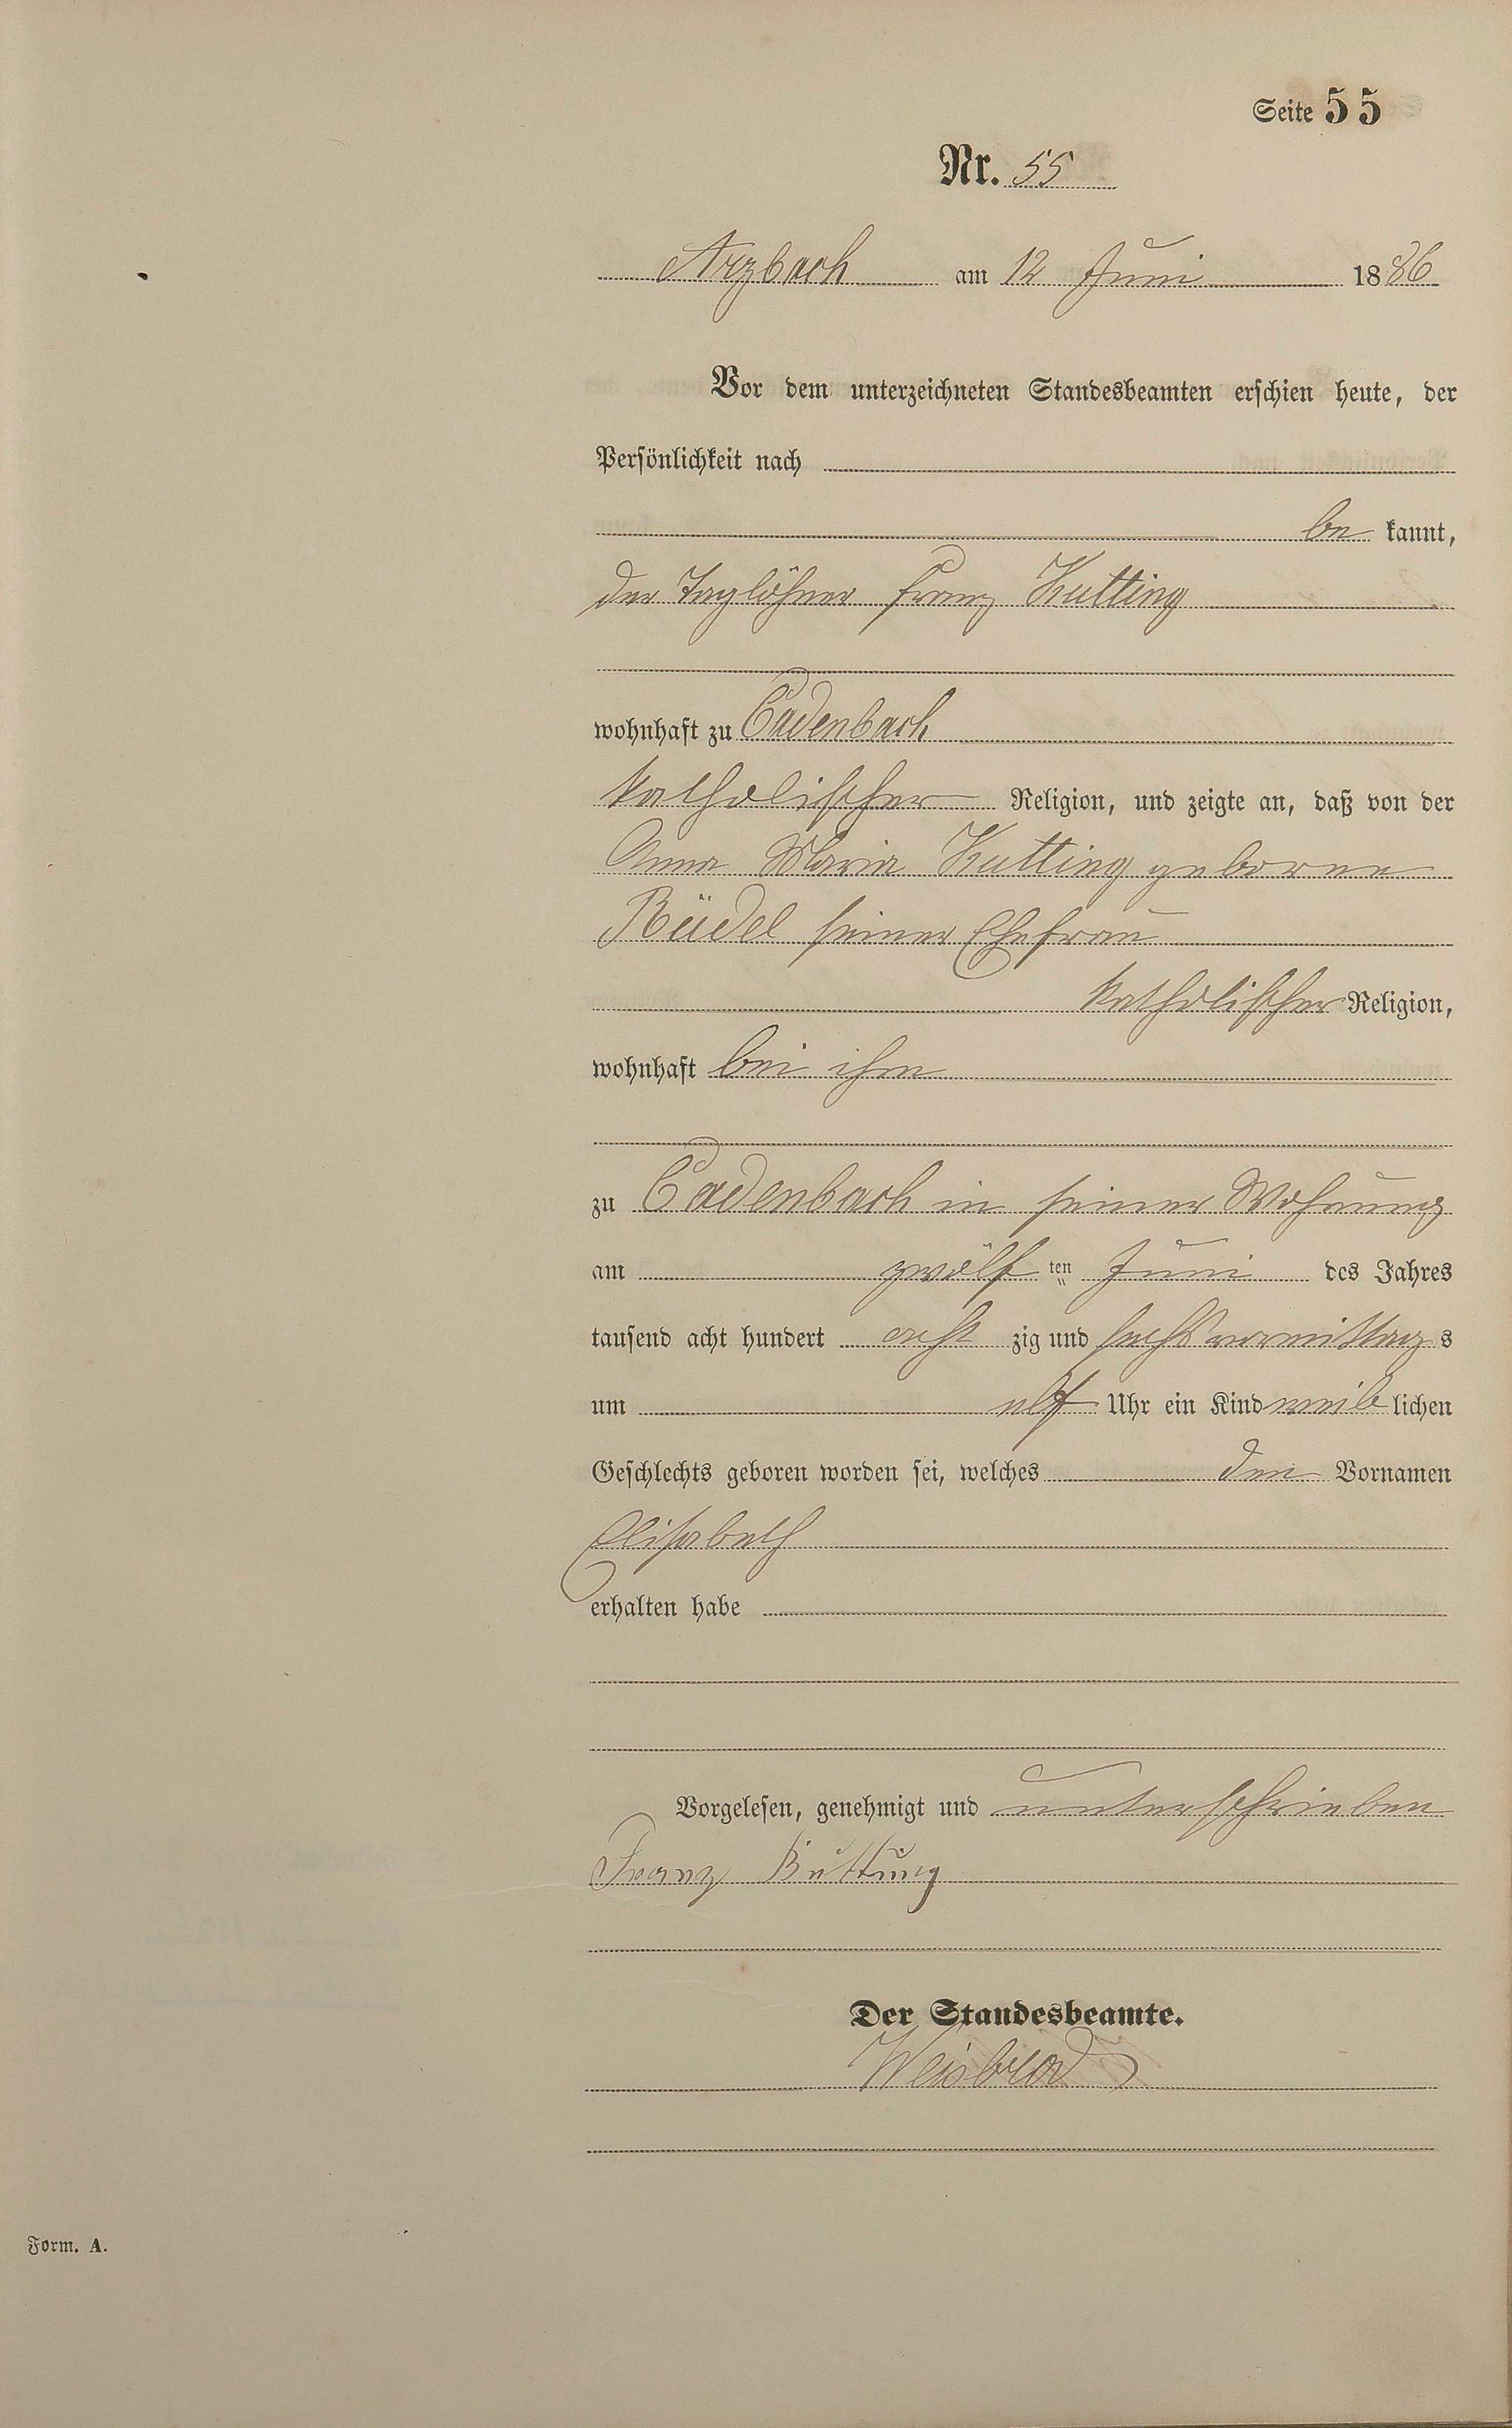 Seite 55
Nr. 55
Arzbach am 12 Juni 1886
Vor dem unterzeichneten Standesbeamten erschien heute, der
Persönlichkeit nach
be kannt,
der Taglöhner Franz Kutting
wohnhaft zu Cadenbach
katholischer Religion, und zeigte an, daß von der
Anna Maria Kutting geborene
Rüdel seiner Ehefrau
katholischer Religion,
wohnhaft bei ihm
zu Cadenbach in seiner Wohnung
am zwölf ten Juni des Jahres
tausend acht hundert acht zig und sechs vormittag s
um elf Uhr ein Kind weib lichen
Geschlechts geboren worden sei, welches den Vornamen
Elisabeth
erhalten habe
Vorgelesen, genehmigt und unterschrieben
Franz Kuttung
Der Standesbeamte.
Weisbrod
Form. A.